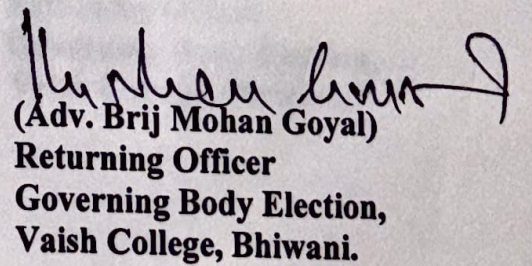 (Adv. Brij Mohan Goyal)
Returning Officer
Governing Body Election,
Vaish College, Bhiwani.